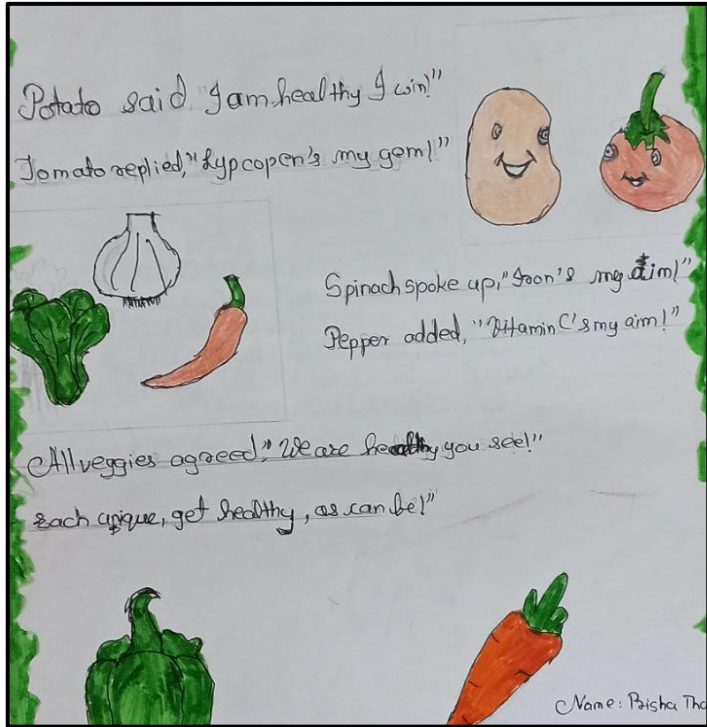 Potato said "I am healthy I win!"
Tomato replied, "Lypcopen's my gem!"
Spinach spoke up, "Iron's my aim!"
Pepper added, "Vitamin C's my aim!"
All veggies agreed, "We are healthy you see!"
Each unique, get healthy, as can be!"
Name: Prisha